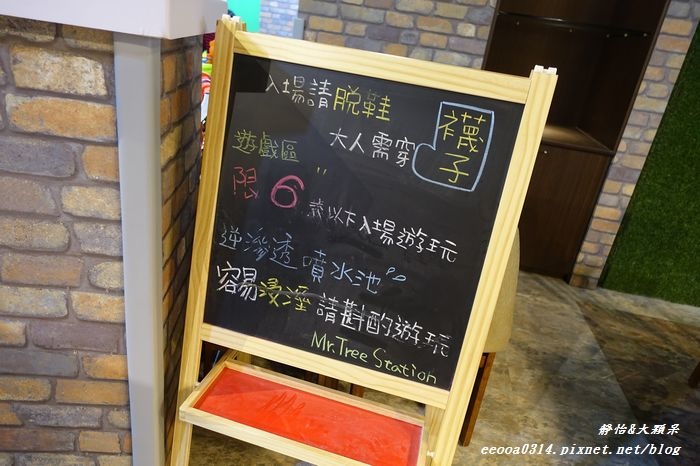 入場請脫鞋
大人需穿襪子
遊戲區
限6歲以下入場遊玩
逆滲透噴水池
容易浸溼請斟酌遊玩
Mr.Tree Station
靜怡&大顆呆
eeooa0314.pixnet.net/blog